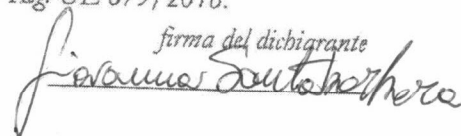 Reg. UE 679/2016.
firma del dichiarante
Giovanna Santabarbera